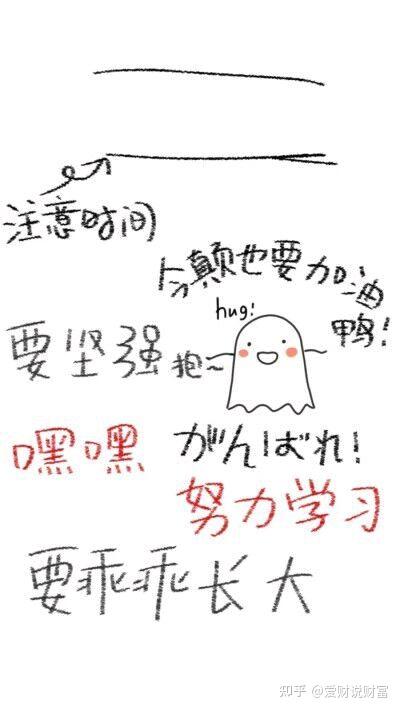 注意时间
颠也要加油鸭!
hug!
要坚强
抱~
嘿嘿
がんばれ!
努力学习
要乖乖长大
知乎 @爱财说财富